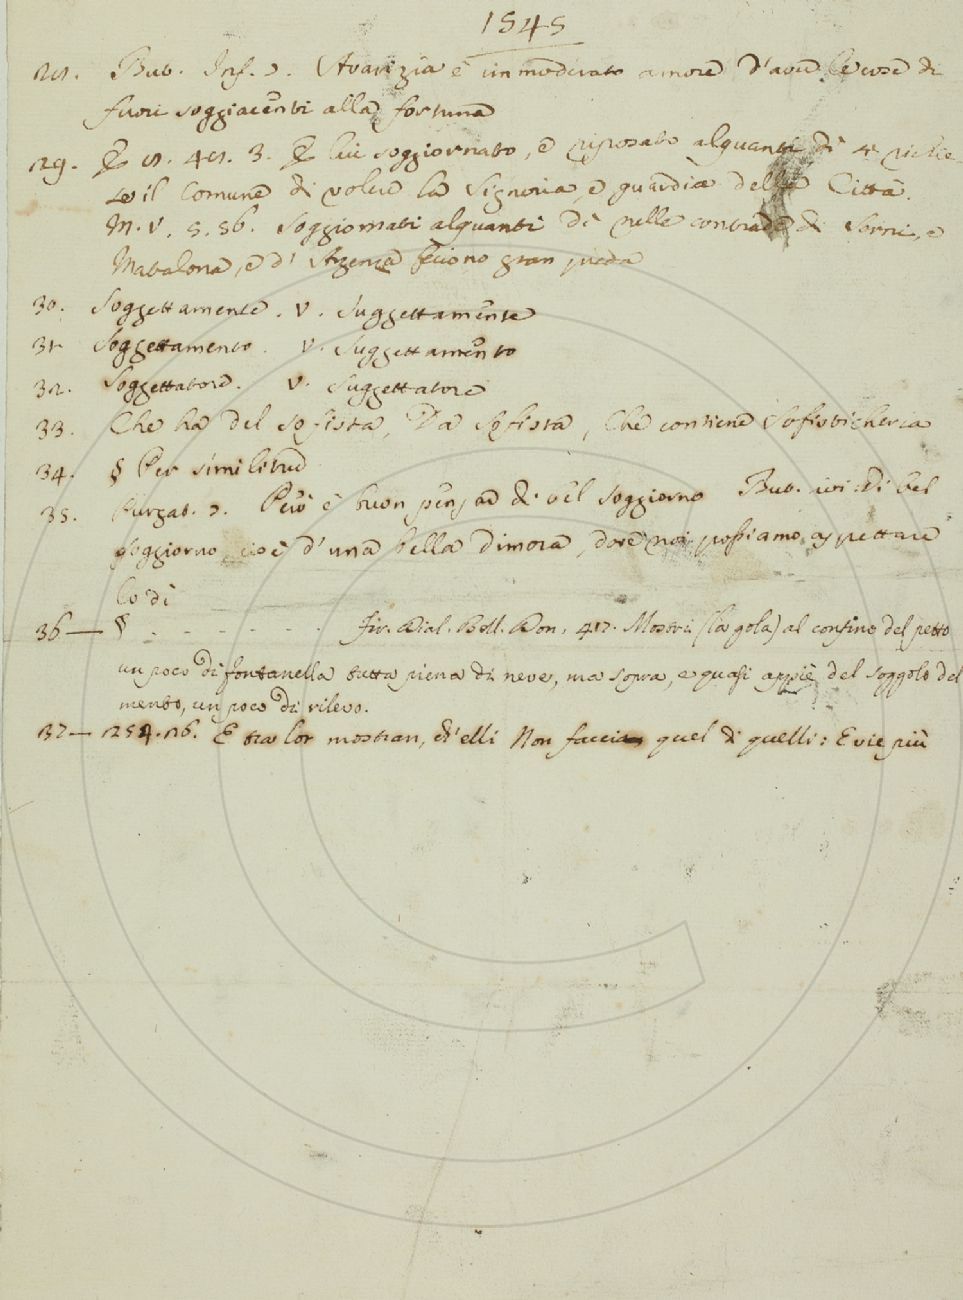 1545
28. But. Inf. 7. Avarizia è immoderato amore d'avere le cose di
fuori soggiacenti alla fortuna
29. G. V. 3. E lui soggiornato, e riposato alquanti dì
il Comune di volere la Signoria e guardia della Città.
M. V. 5. 56. Soggiornati alquanti dì nelle contrade di e
Matalona, e d' feciono gran preda
30. Soggettamente. V. Suggettamente
31. Soggettamento. V. Suggettamento
32. Soggettatore. V. Suggettatore
33. Che ha del sofista, Da sofista, Che contiene Sofisticheria
34. § Per similitud
35. Purgat. 7. Però è buon pensar di bel soggiorno But. ivi: Di bel
soggiorno, cioè d'una bella dimora, dove noi possiamo aspettare
lo dì
36— § - - - - - - - Fir. Dial. Bell. Don. 417. Mostri (la gola) al confine del petto
un poco di fontanella tutta piena di neve, ma sopra, e quasi appiè del soggolo del
mento, un poco di rilievo.
37— 254. 26. E tra lor mostran, ch'elli Non faccia quel di quelli: E vie più